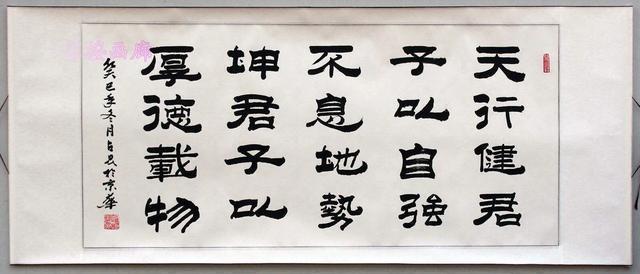 天行健君
子以自強
不息地勢
坤君子以
厚德載物
癸巳年冬月占兵於京華